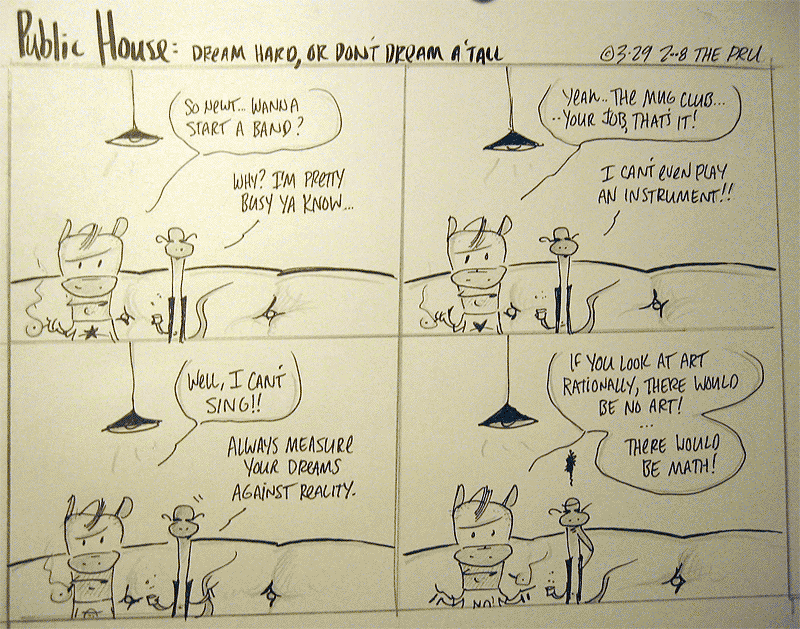 Public House: DREAM HARD, OR DON'T DREAM A'TALL
©3·29 2··8 THE PRU
SO NEWT... WANNA
START A BAND?
WHY? I'M PRETTY
BUSY YA KNOW...
YEAH.. THE MUG CLUB...
..YOUR JOB, THAT'S IT!
I CAN'T EVEN PLAY
AN INSTRUMENT!!
WELL, I CAN'T
SING!!
ALWAYS MEASURE
YOUR DREAMS
AGAINST REALITY.
IF YOU LOOK AT ART
RATIONALLY, THERE WOULD
BE NO ART!
...
THERE WOULD
BE MATH!
NO!